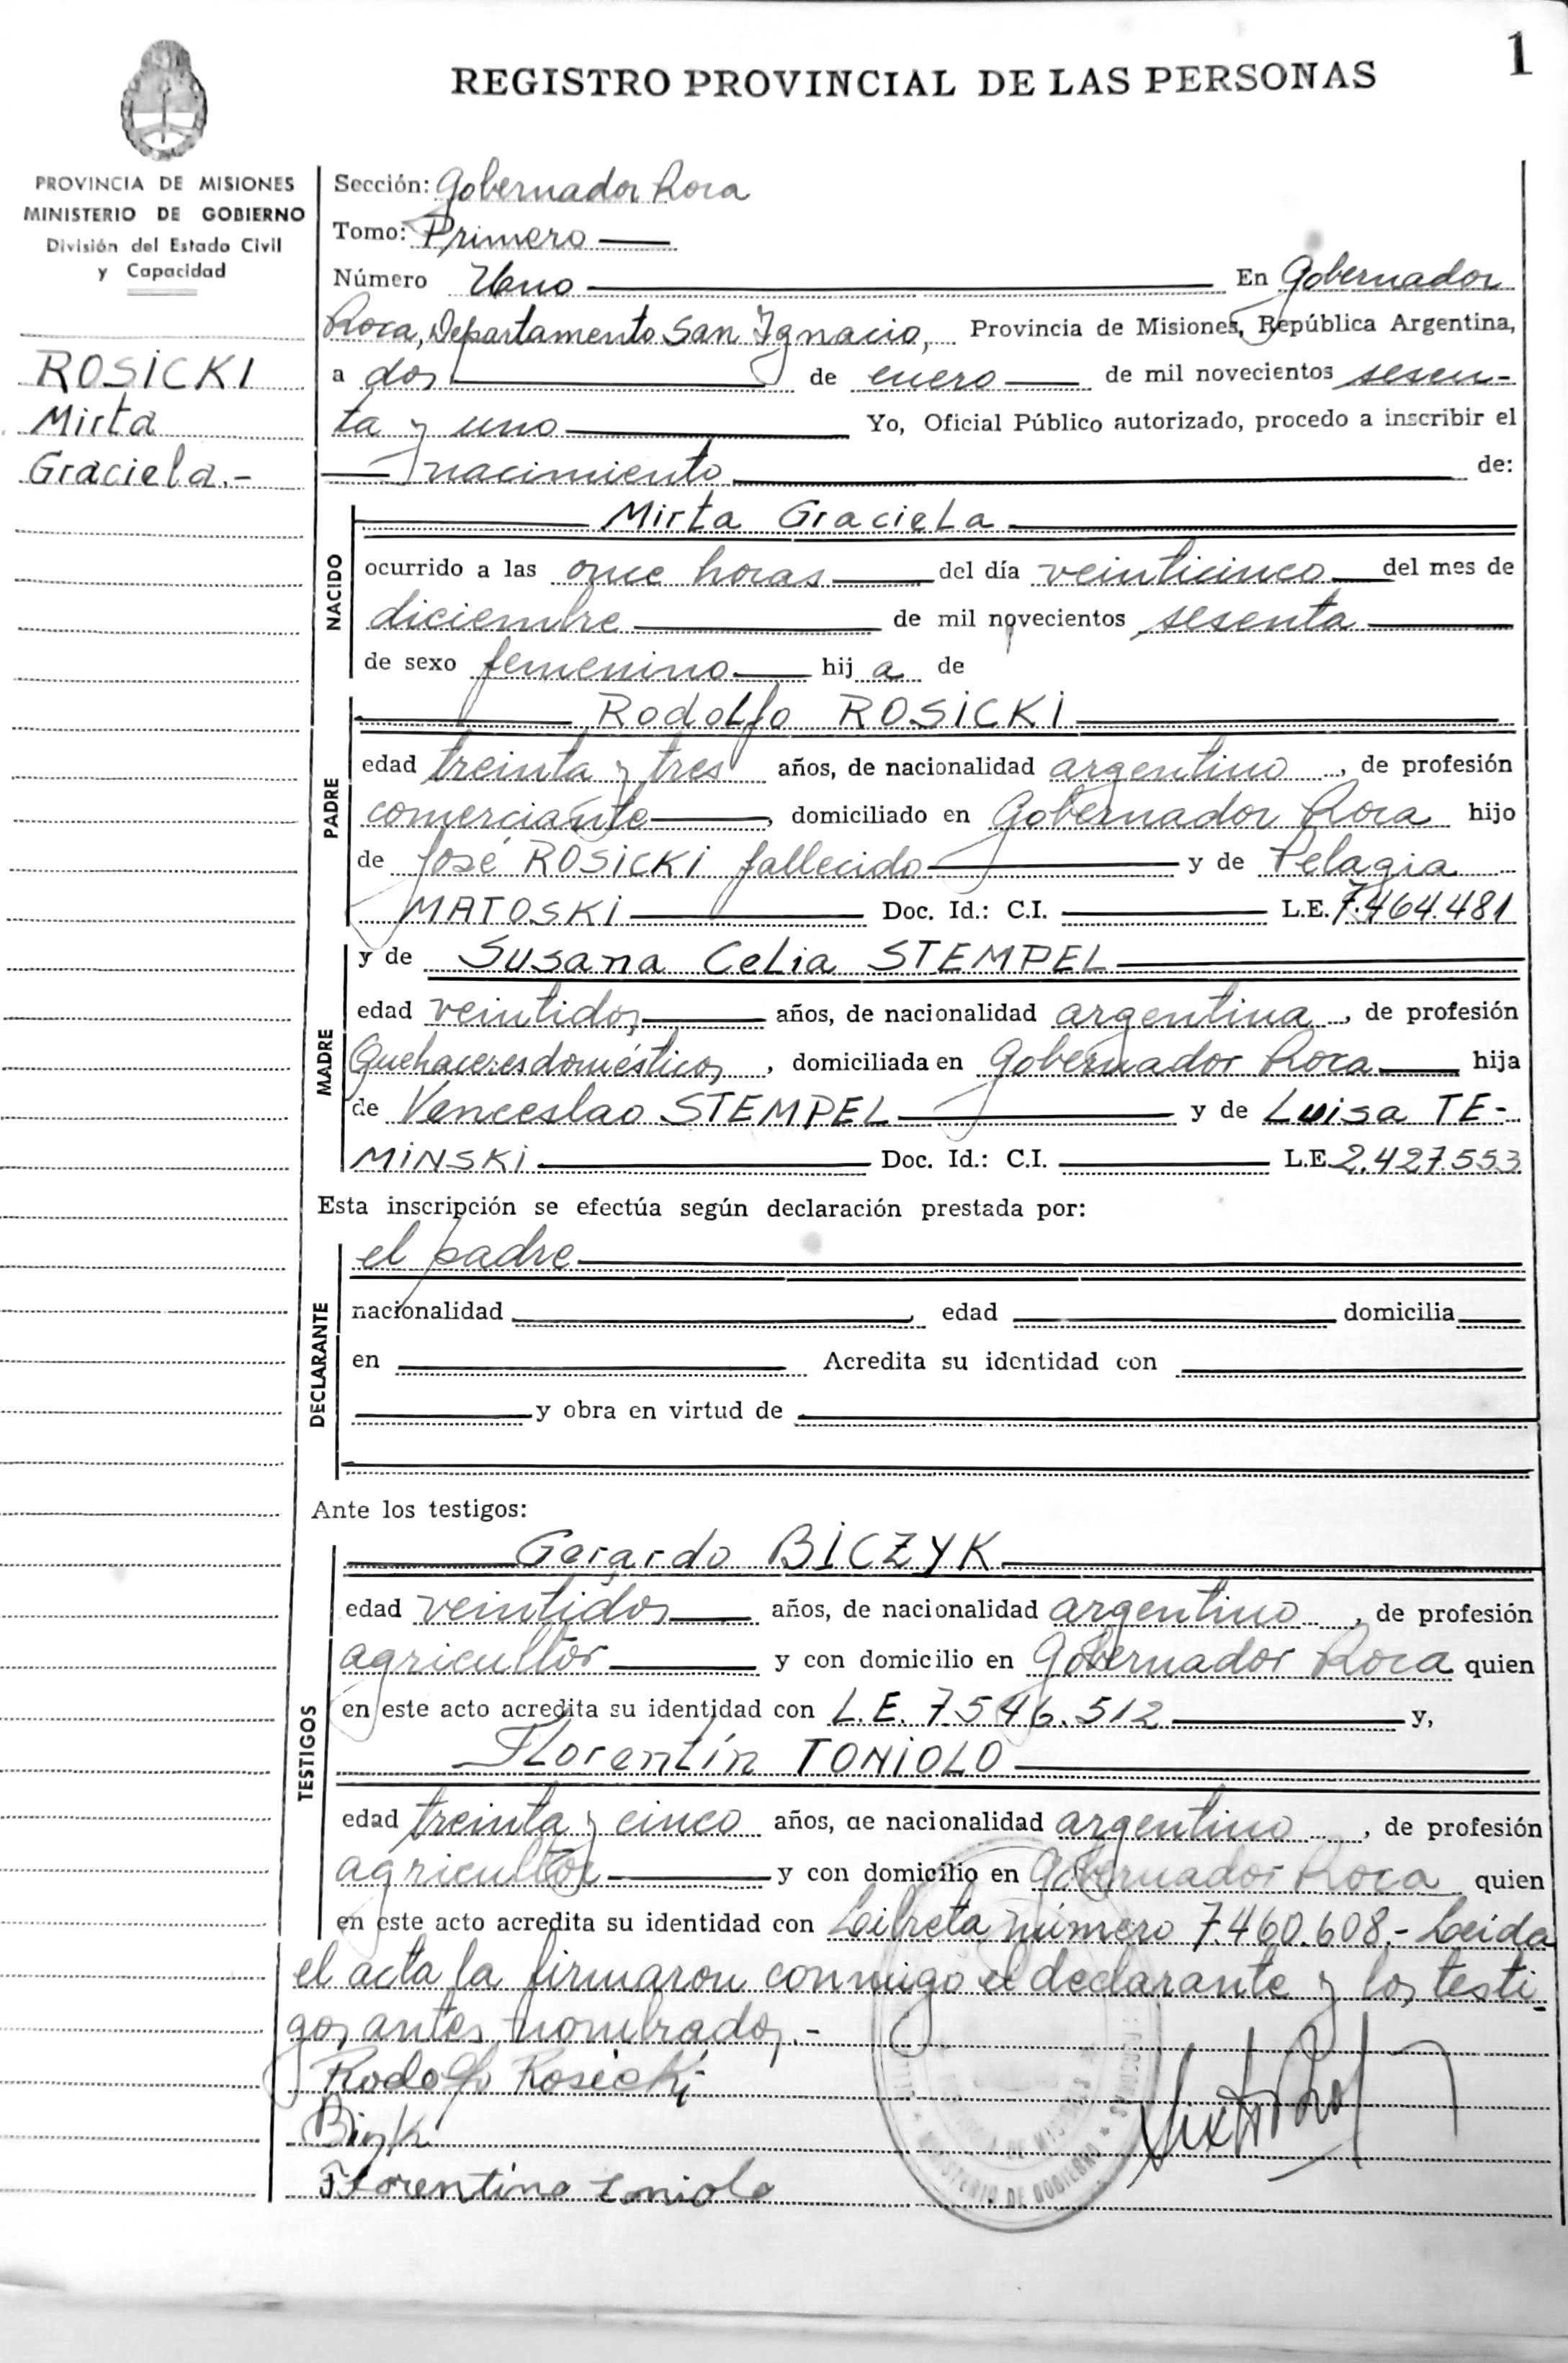 1
REGISTRO PROVINCIAL DE LAS PERSONAS
PROVINCIA DE MISIONES
MINISTERIO DE GOBIERNO
División del Estado Civil
y Capacidad
ROSICKI
Mirta
Graciela.-
Sección: Gobernador Roca
Tomo: Primero
Número Uno En Gobernador
Roca, Departamento San Ignacio, Provincia de Misiones, República Argentina,
a dos de enero de mil novecientos sesen-
ta y uno Yo, Oficial Público autorizado, procedo a inscribir el
nacimiento de:
NACIDO
Mirta Graciela
ocurrido a las once horas del día veinticinco del mes de
diciembre de mil novecientos sesenta
de sexo femenino hija de
PADRE
Rodolfo ROSICKI
edad treinta y tres años, de nacionalidad argentino, de profesión
comerciante, domiciliado en Gobernador Roca hijo
de José ROSICKI fallecido y de Pelagia
MATOSKI Doc. Id.: C.I. L.E. 7.464.481
MADRE
y de Susana Celia STEMPEL
edad veintidos años, de nacionalidad argentina, de profesión
Quehaceres domésticos, domiciliada en Gobernador Roca hija
de Venceslao STEMPEL y de Luisa TE-
MINSKI Doc. Id.: C.I. L.E. 2.427.553
Esta inscripción se efectúa según declaración prestada por:
DECLARANTE
el padre
nacionalidad edad domicilia
en Acredita su identidad con
y obra en virtud de
Ante los testigos:
TESTIGOS
Gerardo BICZYK
edad veintidos años, de nacionalidad argentino, de profesión
agricultor y con domicilio en Gobernador Roca quien
en este acto acredita su identidad con L.E. 7.546.512 y,
Florentín TONIOLO
edad treinta y cinco años, de nacionalidad argentino, de profesión
agricultor y con domicilio en Gobernador Roca quien
en este acto acredita su identidad con Leibreta número 7.460.608.- Leida
el acta la firmaron conmigo el declarante y los testi-
gos antes nombrados.-
Rodolfo Rosicki
Florentino
MINISTERIO DE GOBIERNO